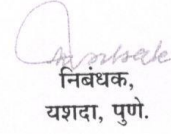 निबंधक,
यशदा, पुणे.